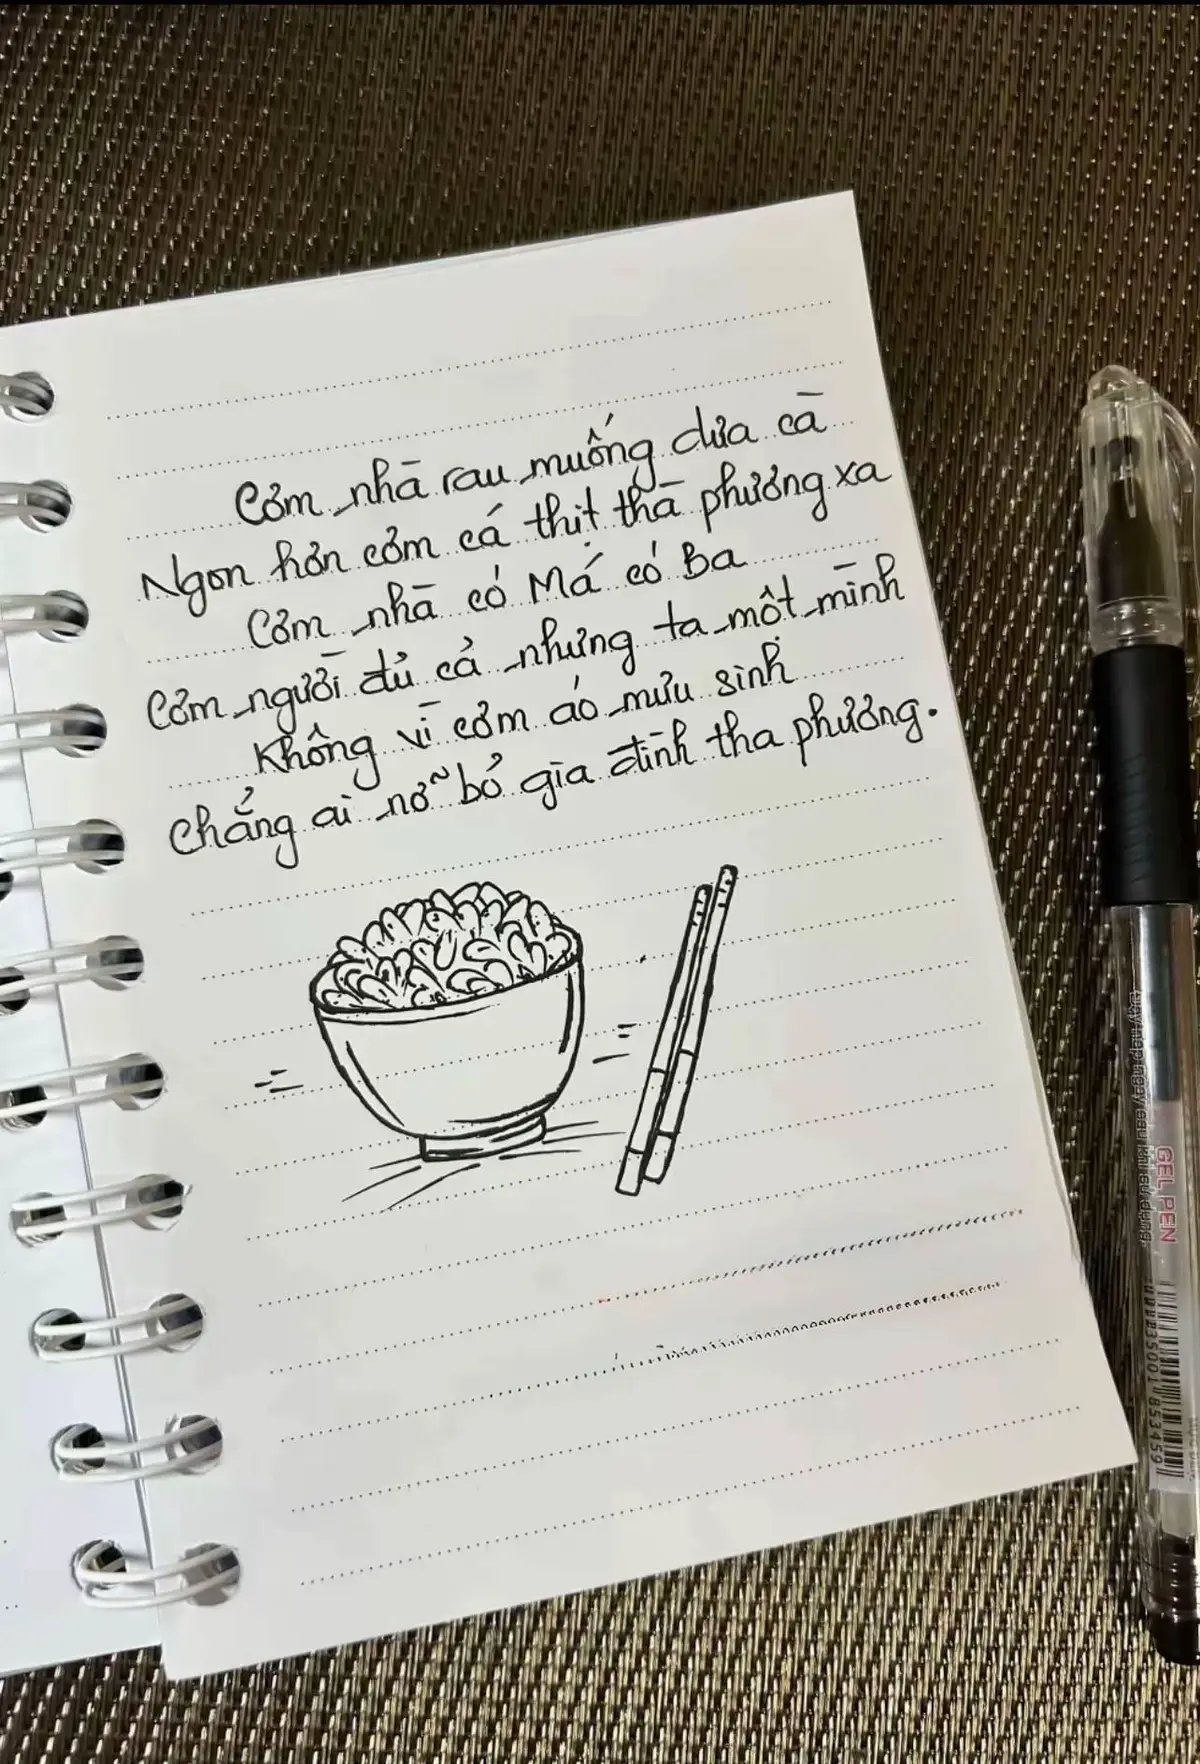 Cơm nhà rau muống dưa cà
Ngon hơn cơm cá thịt thà phương xa
Cơm nhà có Má có Ba
Cơm người đủ cả nhưng ta một mình
Không vì cơm áo mưu sinh
Chẳng ai nỡ bỏ gia đình tha phương.
GEL PEN
Đậy nắp ngay sau khi sử dụng